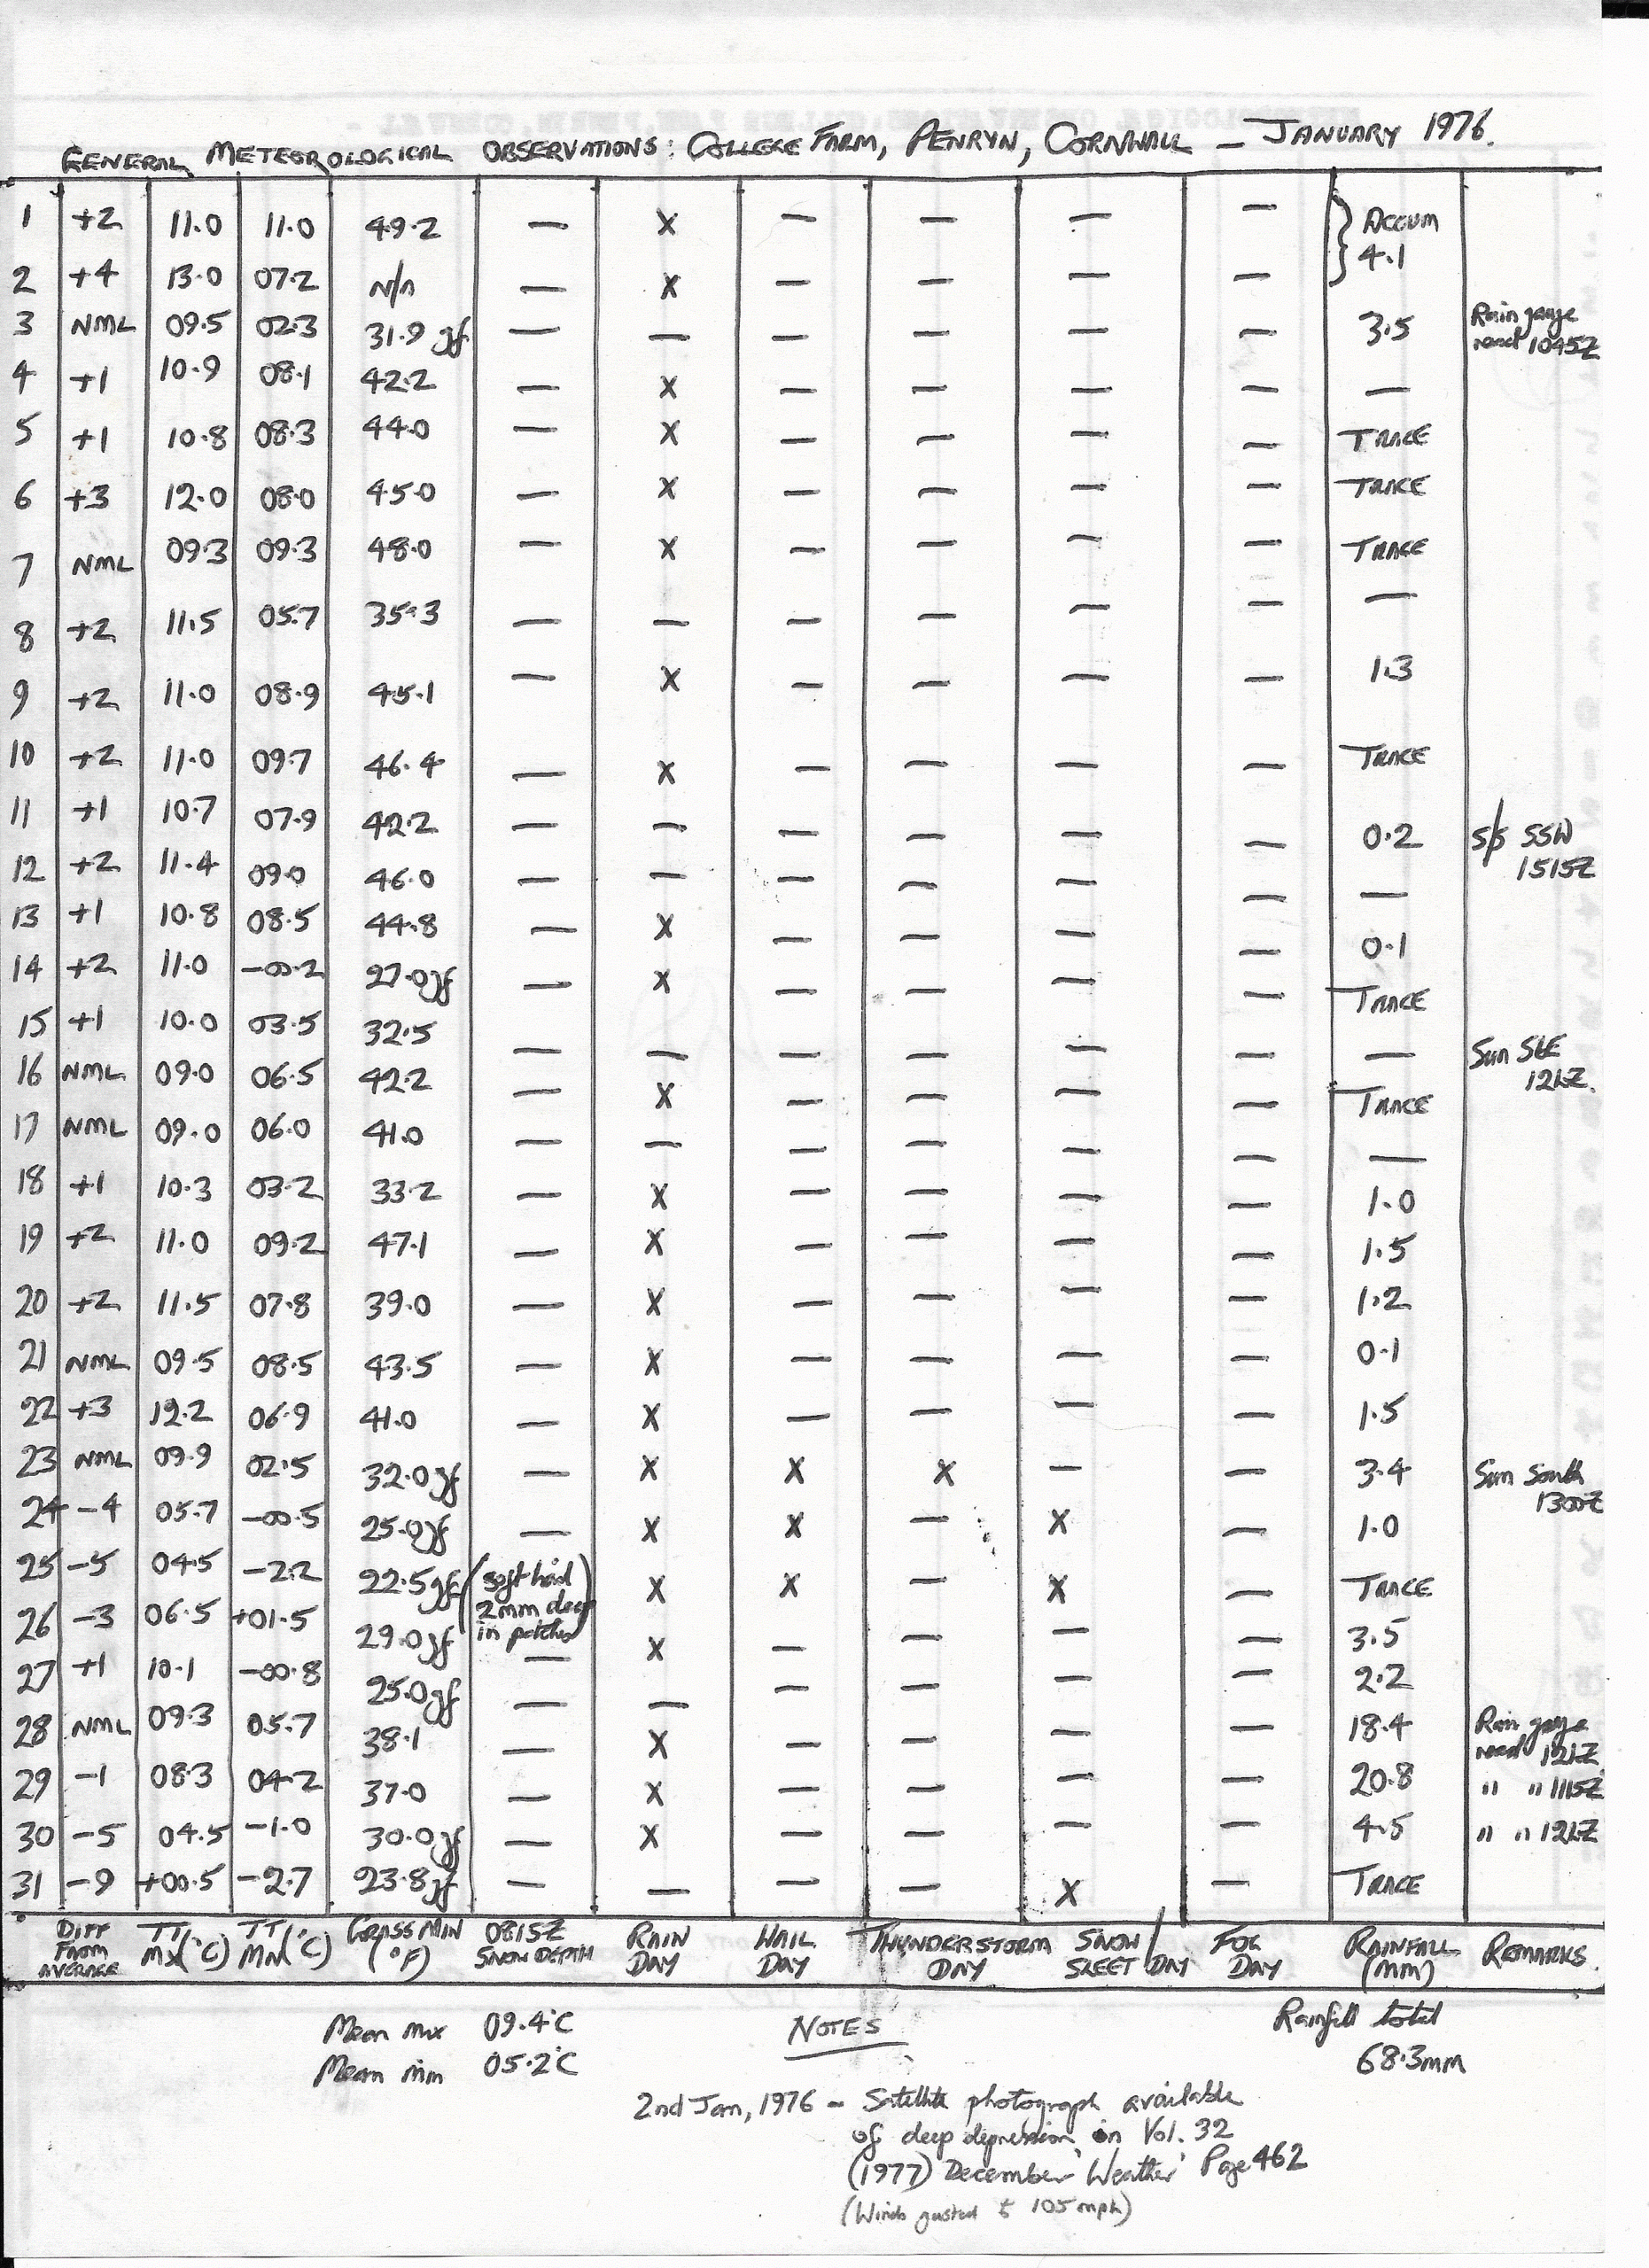 GENERAL METEOROLOGICAL OBSERVATIONS: COLLEGE FARM, PENRYN, CORNWALL — JANUARY 1976.
1 +2 11.0 11.0 49.2 — X — — — — } ACCUM 4.1
2 +4 13.0 07.2 N/A — X — — — —
3 NML 09.5 02.3 31.9 gf — — — — — — 3.5 Rain gauge read 1045Z
4 +1 10.9 08.1 42.2 — X — — — — —
5 +1 10.8 08.3 44.0 — X — — — — TRACE
6 +3 12.0 08.0 45.0 — X — — — — TRACE
7 NML 09.3 09.3 48.0 — X — — — — TRACE
8 +2 11.5 05.7 35.3 — — — — — — —
9 +2 11.0 08.9 45.1 — X — — — — 1.3
10 +2 11.0 09.7 46.4 — X — — — — TRACE
11 +1 10.7 07.9 42.2 — — — — — — 0.2 S/S SSW 1515Z
12 +2 11.4 09.0 46.0 — — — — — — —
13 +1 10.8 08.5 44.8 — X — — — — 0.1
14 +2 11.0 -00.2 27.0gf — X — — — — TRACE
15 +1 10.0 03.5 32.5 — — — — — — — Sun SbE 12hZ.
16 NML 09.0 06.5 42.2 — X — — — — TRACE
17 NML 09.0 06.0 41.0 — — — — — — —
18 +1 10.3 03.2 33.2 — X — — — — 1.0
19 +2 11.0 09.2 47.1 — X — — — — 1.5
20 +2 11.5 07.8 39.0 — X — — — — 1.2
21 NML 09.5 08.5 43.5 — X — — — — 0.1
22 +3 12.2 06.9 41.0 — X — — — — 1.5
23 NML 09.9 02.5 32.0gf — X X X — — 3.4 Sun South 1300Z
24 -4 05.7 -00.5 25.0gf — X X — X — 1.0
25 -5 04.5 -2.2 22.5gf (soft hail) 2mm deep in patches X X — X — TRACE
26 -3 06.5 +01.5 29.0gf — X — — — — 3.5
27 +1 10.1 -00.8 25.0gf — — — — — — 2.2
28 NML 09.3 05.7 38.1 — X — — — — 18.4 Rain gauge read 12hZ
29 -1 08.3 04.2 37.0 — X — — — — 20.8 " " 1115Z
30 -5 04.5 -1.0 30.0gf — X — — — — 4.5 " " 12hZ
31 -9 +00.5 -2.7 23.8gf — — — — X — TRACE
DIFF FROM AVERAGE TT MX(°C) TT MN(°C) GRASS MIN (°F) 0815Z SNOW DEPTH RAIN DAY HAIL DAY THUNDERSTORM DAY SNOW/ SLEET DAY FOG DAY RAINFALL (MM) REMARKS.
Mean max 09.4°C
Mean min 05.2°C
NOTES
Rainfall total
68.3mm
2nd Jan, 1976 - Satellite photograph available
of deep depression in Vol. 32
(1977) December 'Weather' Page 462
(Winds gusted to 105 mph)